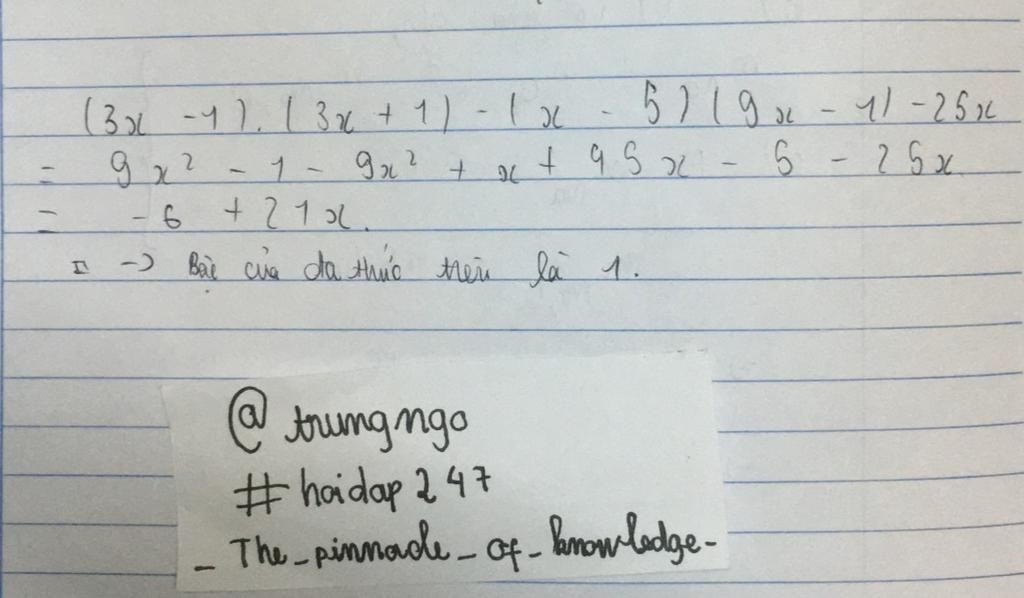 (3x - 1).(3x + 1) - (x - 5)(9x - 1) - 25x
= 9x² - 1 - 9x² + x + 45x - 5 - 25x
= - 6 + 21x.
-> Bậc của đa thức trên là 1.
@trungngo
#hoidap247
_The_pinnacle_of_knowledge_